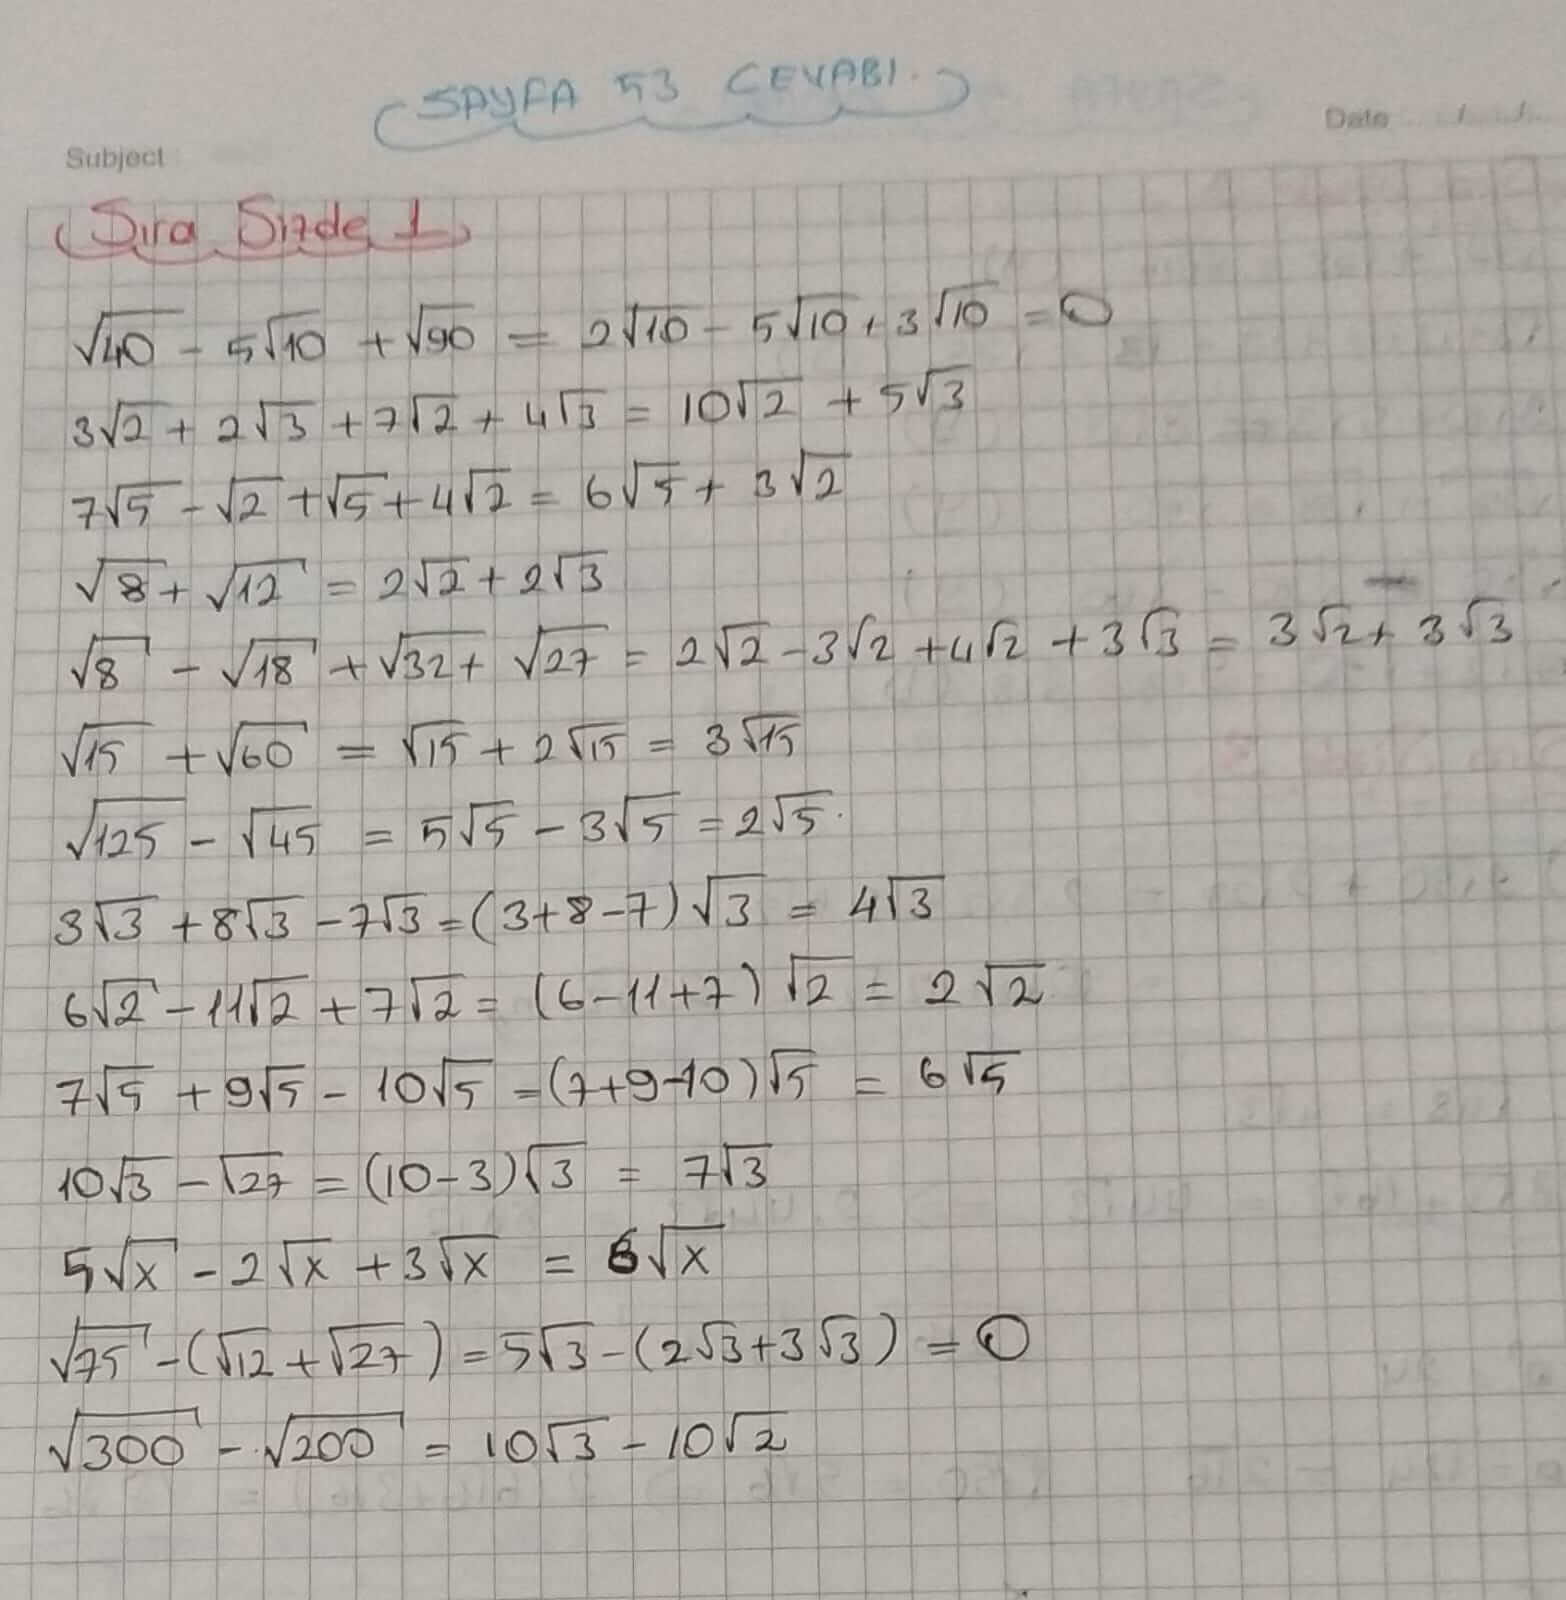 SAYFA 53 CEVABI.
Subject
Date
Sıra Sizde 1
√40 - 5√10 + √90 = 2√10 - 5√10 + 3√10 = 0
3√2 + 2√3 + 7√2 + 4√3 = 10√2 + 5√3
7√5 - √2 + √5 + 4√2 = 6√5 + 3√2
√8 + √12 = 2√2 + 2√3
√8 - √18 + √32 + √27 = 2√2 - 3√2 + 4√2 + 3√3 = 3√2 + 3√3
√15 + √60 = √15 + 2√15 = 3√15
√125 - √45 = 5√5 - 3√5 = 2√5.
3√3 + 8√3 - 7√3 = (3+8-7)√3 = 4√3
6√2 - 11√2 + 7√2 = (6-11+7)√2 = 2√2
7√5 + 9√5 - 10√5 = (7+9-10)√5 = 6√5
10√3 - √27 = (10-3)√3 = 7√3
5√x - 2√x + 3√x = 6√x
√75 - (√12 + √27) = 5√3 - (2√3 + 3√3) = 0
√300 - √200 = 10√3 - 10√2